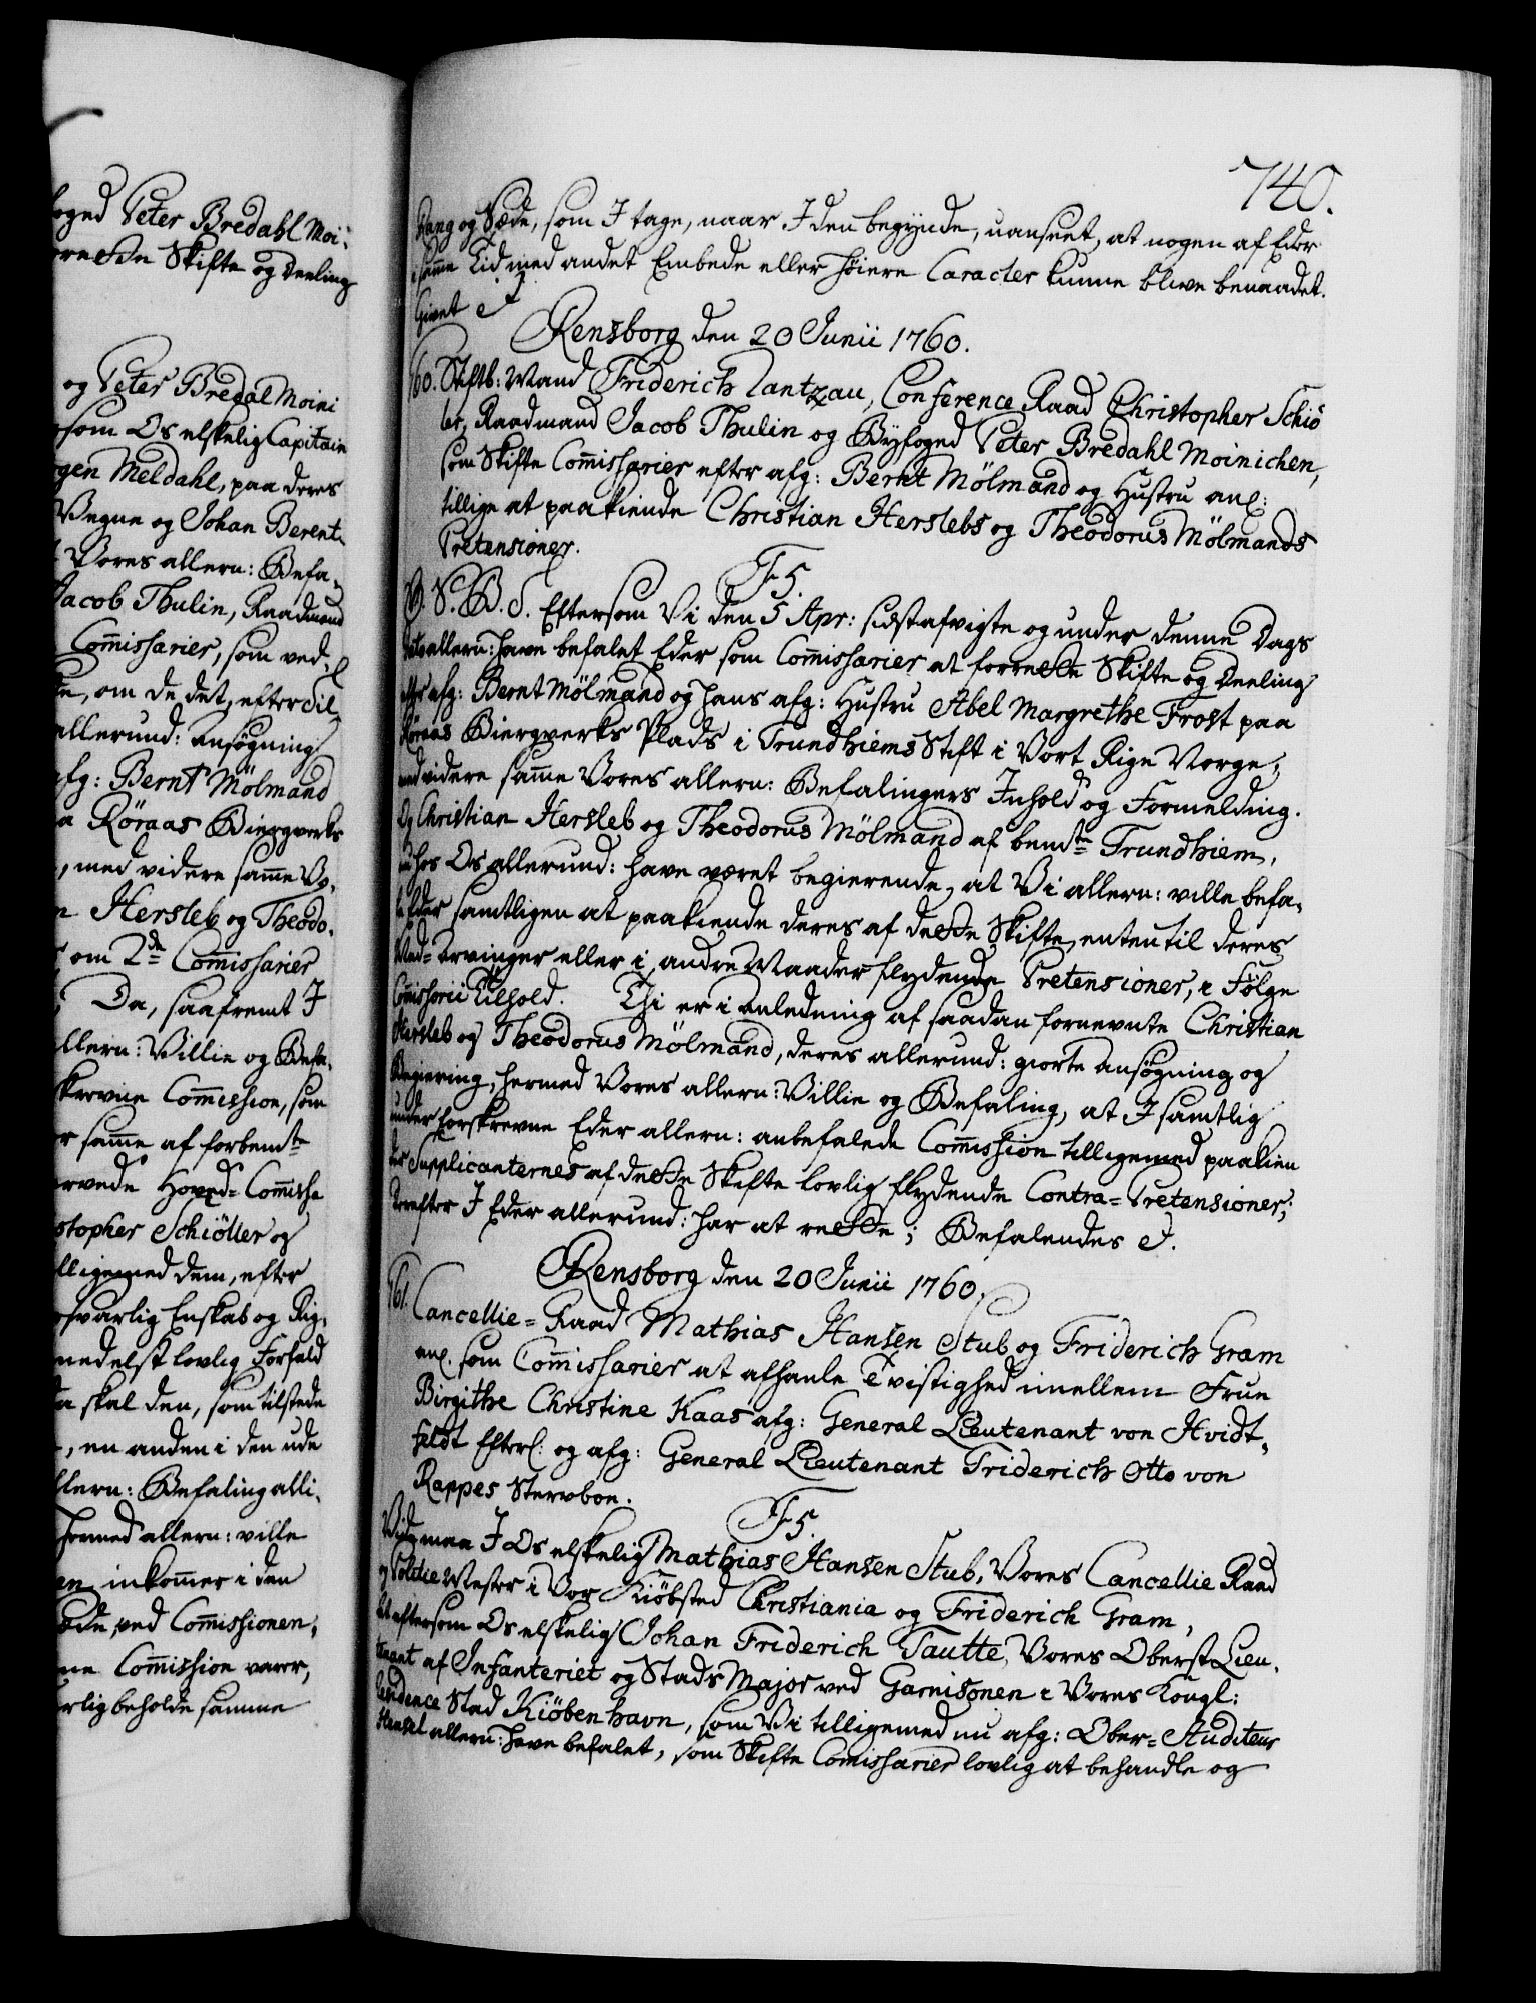 foged Peter Bredahl Moi-
rette Skifte og Deeling
og Peter Bredal Moini
som Os elskelig Capitain
gen Meldahl, paa deres
Vegne og Johan Berent
Vores allern: Befa-
Jacob Thulin, Raadmand
Commissarier, som ved-
om de det, efter
allerund: Ansøgning
afg: Bernt Mölmand
Röraas Biergverks
, med videre samme Vo-
Hersleb og Theodo-
om 2de Commissarier
Da, saafremt I
allern: Villie og Befa-
skrevne Commission, som
samme af forbemte
Hoved-Commissa
stopher Schiöller og
lligemed dem, efter
forsvarlig Enskab og Rig-
medelst lovlig Forfald
da skal den, som tilstede
, en anden i den ude
allern: Befaling alli-
hermed allern: ville
inkommer i den
Sæde, ved Commissionen,
Commission varer,
beholde samme
740.
Rang og Sæde, som I tage, naar I den begynde, uanseet, at nogen af Eder
i samme Tid med andet Embede eller höiere Caracter kunne blive benaadet.
Givet etc
Rensborg den 20 Junii 1760.
60. Stiftb: Mand Friderich Rantzau, Conference Raad Christopher Schiö
ler, Raadmand Jacob Thulin og Byfoged Peter Bredahl Moinichen,
som Skifte Commissarier efter afg: Bernt Mölmand og Hustru anl:
tillige at paakiende Christian Herslebs og Theodorus Mölmands
Pretensioner.
F 5.
V. S. B. S. Eftersom Vi den 5 Apr: sidstafvigte og under denne Dags
Dato allern: have befalet Eder som Commissarier at forrette Skifte og Deeling
efter afg: Bernt Mölmand og hans afg: Hustru Abel Margrethe Frost paa
Röraas Biergverks Plads i Trundhiems Stift i Vort Rige Norge,
med videre samme Vores allern: Befalingers Inhold og Formelding.
Og Christian Hersleb og Theodorus Mölmand af bemte Trundhiem,
nu hos Os allerund: have været begierende, at Vi allern: ville befa-
le Eder samtligen at paakiende deres af dette Skifte, enten til deres
Med-Arvinger eller i andre Maader flydende Pretensioner, i Følge
Commissorii Tilhold. Thi er i Anledning af saadan fornevnte Christian
Hersleb og Theodorus Mölmand, deres allerund: giorte Ansøgning og
Begiering, hermed Vores allern: Villie og Befaling, at I samtlig
under forskrevne Eder allern: anbefalede Commission tilligemed paakien
der Supplicanternes af dette Skifte lovlig flydende Contra-Pretensioner;
Derefter I Eder allerund: har at rette; Befalendes etc.
Rensborg den 20 Junii 1760.
61. Cancellie-Raad Mathias Hansen Stub og Friderich Gram
anl. som Commissarier at afhanle Tvistighed imellem Frue
Birgithe Christine Kaas afg: General Lieutenant von Hvidt-
feldt Efterl: og afg: General Lieutenant Friderich Otto von
Rappes Sterboe.
F 5.
Vide maa I Os elskelig Mathias Hansen Stub, Vores Cancellie Raad
og Politie Mester i Vor Kiöbsted Christiania og Friderich Gram,
At eftersom Os elskelig Johan Friderich Tautte, Vores Oberst Lieu-
tenant af Infanteriet og Stads Major ved Garnisonen i Vores Kongl:
Residence Stad Kiöbenhavn, som Vi tilligemed nu afg: Ober-Auditeur
Hensel allern: have befalet, som Skifte Comissarier lovlig at behandle og